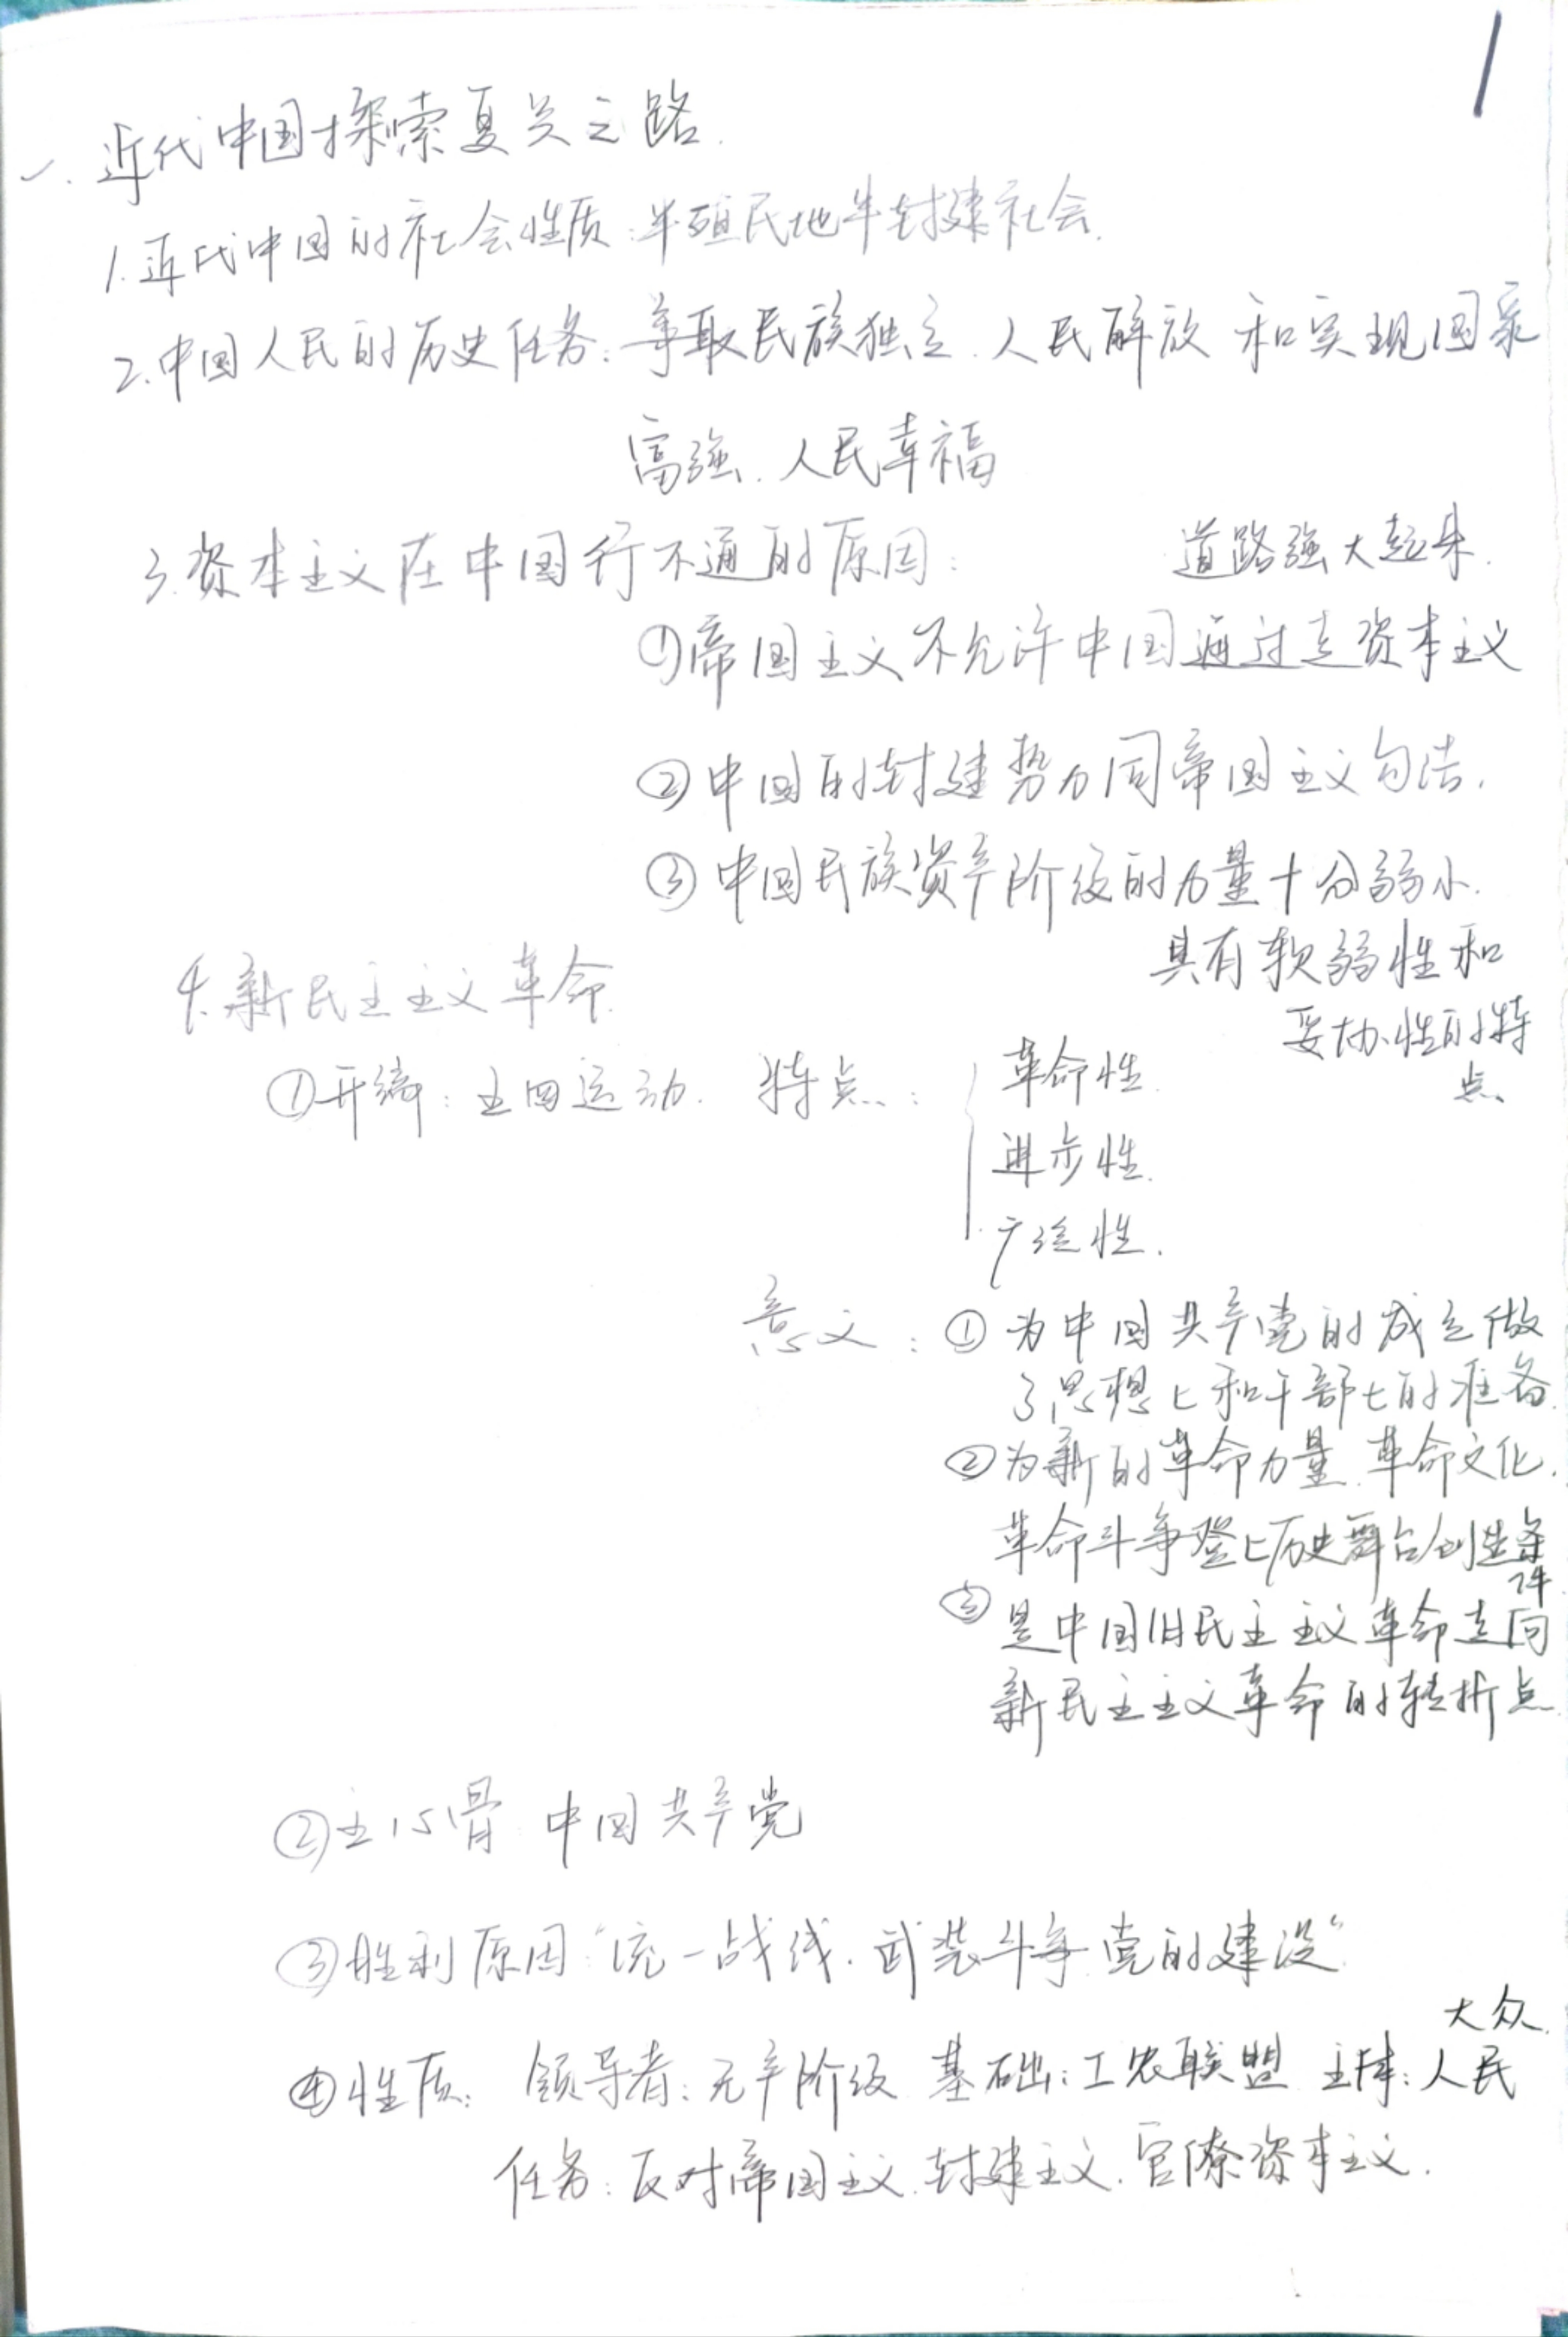 1
一.近代中国探索复兴之路.
1.近代中国的社会性质:半殖民地半封建社会.
2.中国人民的历史任务:争取民族独立.人民解放 和实现国家
富强.人民幸福
3.资本主义在中国行不通的原因:
道路强大起来.
①帝国主义不允许中国通过走资本主义
②中国的封建势力同帝国主义勾结.
③中国民族资产阶级的力量十分弱小.
具有软弱性和
妥协性的特
点
4.新民主主义革命.
①开端:五四运动. 特点:
革命性.
进步性.
广泛性.
意义:①为中国共产党的成立做
了思想上和干部上的准备.
②为新的革命力量.革命文化.
革命斗争登上历史舞台创造条
件.
③是中国旧民主主义革命走向
新民主主义革命的转折点.
②主心骨:中国共产党
③胜利原因“统一战线.武装斗争.党的建设”
④性质: 领导者:无产阶级 基础:工农联盟 主体:人民
大众.
任务:反对帝国主义.封建主义.官僚资本主义.